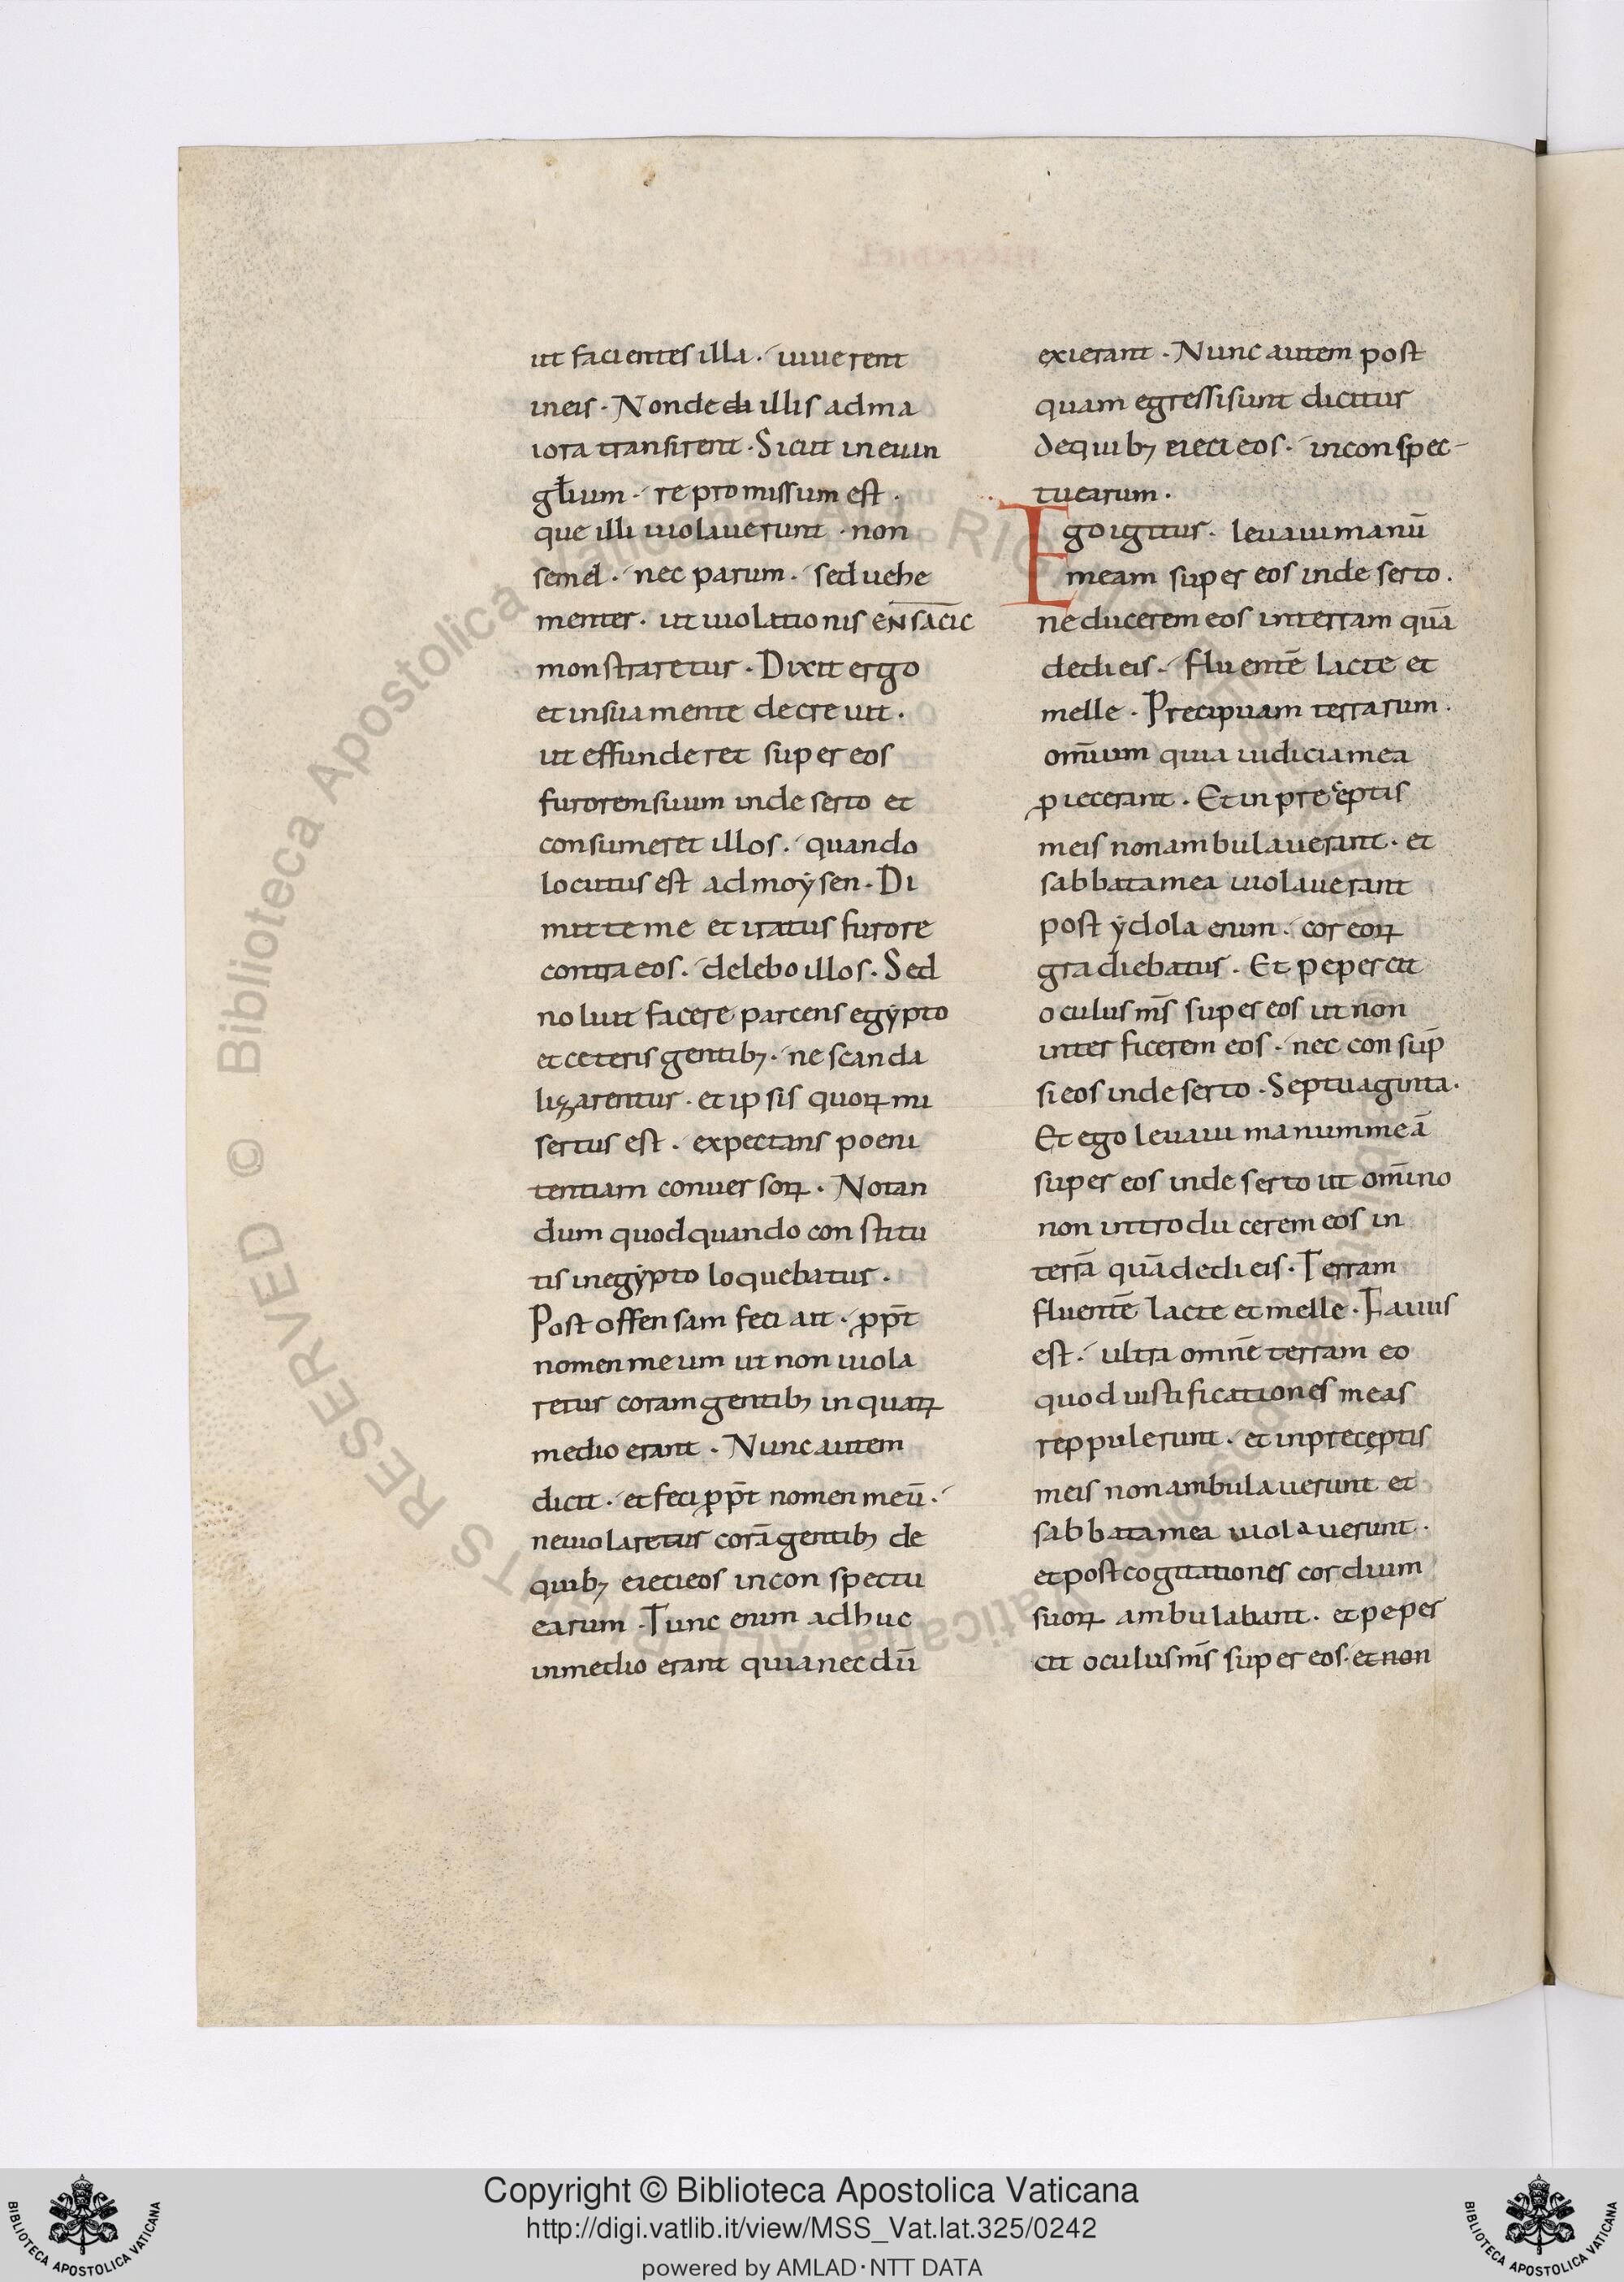 ut facientes illa · uiuerent
in eis · Non de di illis ad ma
iora transirent · Sicut in euan
głium · repromissum est ·
que illi uiolauerunt · non
semel · nec parum · sed uehe
menter · ut uiolationis
monstraretur · Dixit ergo
et in sua mente decreuit ·
ut effunderet super eos
furorem suum in deserto et
consumeret illos · quando
locutus est ad moẏsen · Di
mitte me et iratus furore
contra eos · delebo illos · Sed
noluit facere parcens egẏpto
et ceteris gentibꝫ · ne scanda
lizarentur · et ipsis quoꝝ mi
sertus est · expectans poeni
tentiam conuersoꝝ · Notan
dum quod quando constitu
tis in egẏpto loquebatur ·
Post offensam feci ait · ꝓp̄t
nomen meum ut non uiola
retur coram gentibꝫ in quaꝝ
medio erant · Nunc autem
dicit · et feci ꝓp̄t nomen meū ·
ne uiolaretur corā gentibꝫ de
quibꝫ eieci eos in conspectu
earum · Tunc enim adhuc
in medio erant quia nec dū
exierant · Nunc autem post
quam egressi sunt dicitur
de quibꝫ eieci eos · in conspec-
tu earum ·
Ego igitur · leuaui manū
meam super eos in deserto ·
ne ducerem eos in terram quā
dedi eis · fluentē lacte et
melle · Precipuam terrarum ·
omīum quia iudicia mea
ꝓiecerant · Et in preceptis
meis non ambulauerant · et
sabbata mea uiolauerant
post ẏdola enim · cor eoꝝ
gradiebatur · Et pepercit
oculus m̄s super eos ut non
interficerem eos · nec consūp
si eos in deserto · Septuaginta ·
Et ego leuaui manum meā
super eos in deserto ut omīno
non introducerem eos in
terrā quā dedi eis · Terram
fluentē lacte et melle · Fauus
est · ultra omnē terram eo
quod iustificationes meas
reppulerunt · et in preceptis
meis non ambulauerunt et
sabbata mea uiolauerunt ·
et post cogitationes cordium
suoꝝ ambulabant · et peper
cit oculus m̄s super eos · et non
© Biblioteca Apostolica Vaticana ALL RIGHTS RESERVED
Copyright © Biblioteca Apostolica Vaticana
http://digi.vatlib.it/view/MSS_Vat.lat.325/0242
powered by AMLAD·NTT DATA
BIBLIOTECA APOSTOLICA VATICANA
BIBLIOTECA APOSTOLICA VATICANA